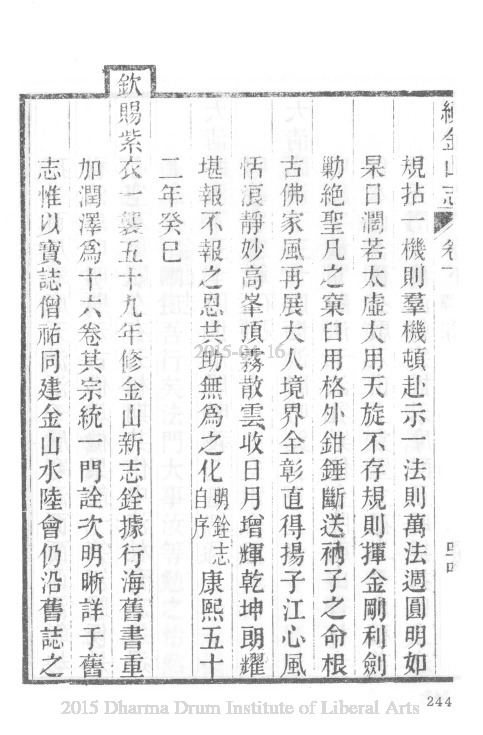 續金山志 卷下
規拈一機則羣機頓赴示一法則萬法週圓明如
杲日濶若太虛大用天旋不存規則揮金剛利劍
勦絶聖凡之窠臼用格外鉗錘斷送衲子之命根
古佛家風再展大人境界全彰直得揚子江心風
恬浪靜妙高峯頂霧散雲收日月增輝乾坤朗耀
堪報不報之恩共助無爲之化明銓志自序康熙五十
二年癸巳
欽賜紫衣一襲五十九年修金山新志銓據行海舊書重
加潤澤爲十六卷其宗統一門詮次明晰詳于舊
志惟以寶誌僧祐同建金山水陸會仍沿舊誌之
2015-04-16
244
2015 Dharma Drum Institute of Liberal Arts